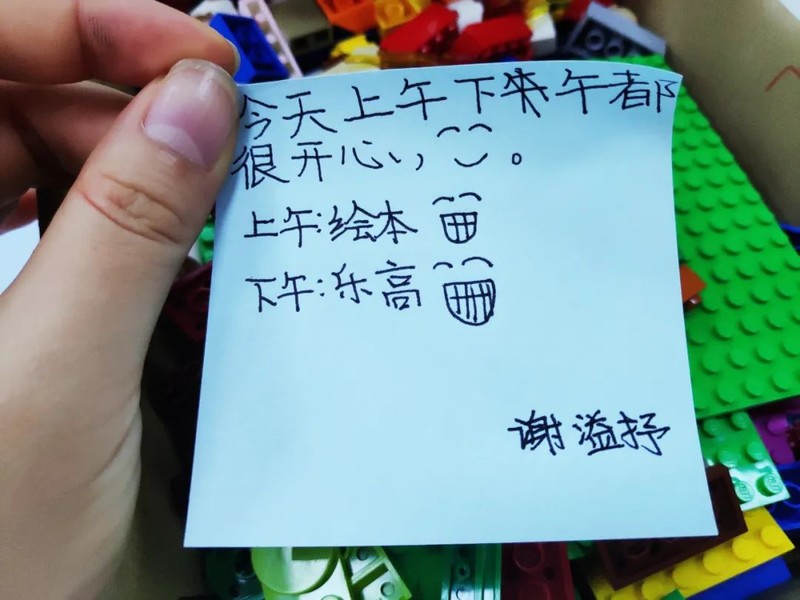 今天上午下来午都
很开心,。
上午:绘本
下午:乐高
谢溢抒